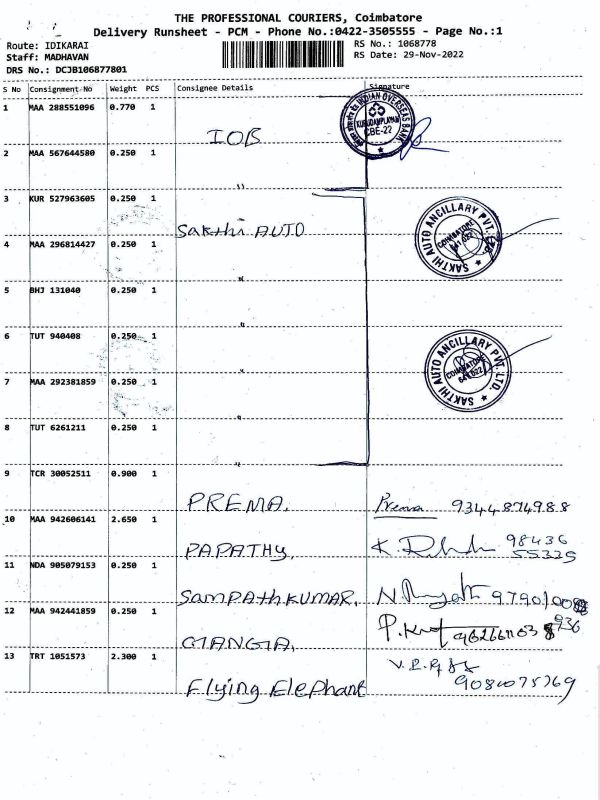 THE PROFESSIONAL COURIERS, Coimbatore
Delivery Runsheet - PCM - Phone No.:0422-3505555 - Page No.:1
Route: IDIKARAI
RS No.: 1068778
Staff: MADHAVAN
RS Date: 29-Nov-2022
DRS No.: DCJB106877801
S No Consignment No Weight PCS Consignee Details Signature
1 MAA 288551096 0.770 1
IOB
INDIAN OVERSEAS BANK
KURUDAMPLAYAM
CBE-22
2 MAA 567644580 0.250 1
3 KUR 527963605 0.250 1
Sakthi AUTO
SAKTHI AUTO ANCILLARY PVT. LTD.
COIMBATORE
641 022
4 MAA 296814427 0.250 1
5 BHJ 131040 0.250 1
6 TUT 940408 0.250 1
SAKTHI AUTO ANCILLARY PVT. LTD.
COIMBATORE
641 022
7 MAA 292381859 0.250 1
8 TUT 6261211 0.250 1
9 TCR 30052511 0.900 1
PREMA. Prema 9344874988
10 MAA 942606141 2.650 1
PAPATHY. 98436
55335
11 NDA 905079153 0.250 1
SAMPATHKUMAR.
12 MAA 942441859 0.250 1
GIANGIA.
13 TRT 1051573 2.300 1
Flying Elephant